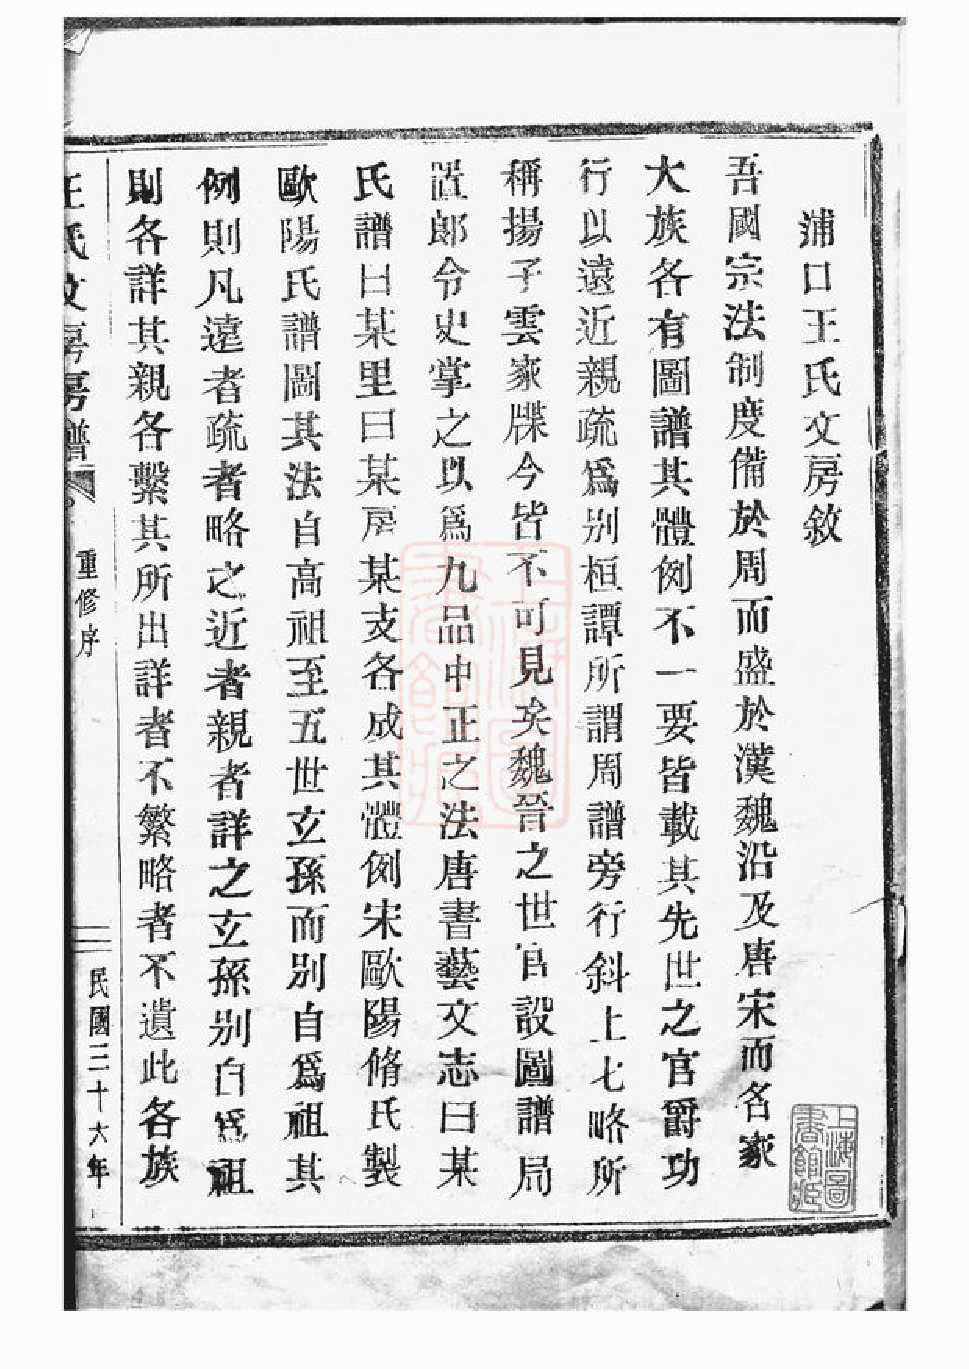 浦口王氏文房敘
吾國宗法制度備於周而盛於漢魏沿及唐宋而名家
大族各有圖譜其體例不一要皆載其先世之官爵功
行以遠近親疏爲別桓譚所謂周譜旁行斜上七略所
稱揚子雲家牒今皆不可見矣魏晉之世官設圖譜局
置郎令史掌之以爲九品中正之法唐書藝文志曰某
氏譜曰某里曰某房某支各成其體例宋歐陽脩氏製
歐陽氏譜圖其法自高祖至五世玄孫而別自爲祖其
例則凡遠者疏者略之近者親者詳之玄孫別自爲祖
則各詳其親各繫其所出詳者不繁略者不遺此各族
王氏文房房譜 重修序 民國三十六年
上海圖書館藏
上海圖書館藏